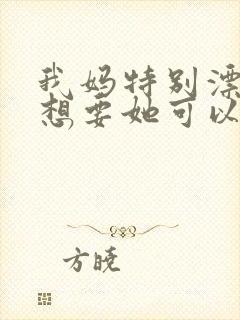 我妈特别漂
想要她可以
方晓